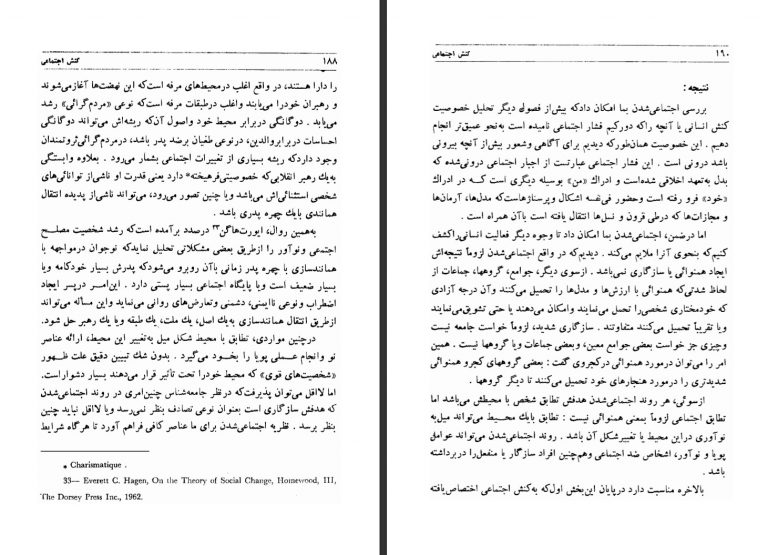 ۱۸۸ کنش اجتماعی
را دارا هستند، در واقع اغلب درمحیط‌های مرفه است‌که این نهضت‌ها آغازمی‌شوند
و رهبران خودرا می‌یابند واغلب درطبقات مرفه است‌که نوعی «مردم‌گرائی» رشد
می‌یابد . دوگانگی دربرابر محیط خود واصول آن‌که ریشه‌اش می‌تواند دوگانگی
احساسات دربرابروالدین، درنوعی طغیان برضد پدر باشد، درمردم‌گرائی‌ثروتمندان
وجود داردکه ریشه بسیاری از تغییرات اجتماعی بشمار می‌رود . بعلاوه وابستگی
به‌یك رهبر انقلابی‌که خصوصیتی‌فرهیخته* دارد یعنی قدرت او ناشی‌از توانائی‌های
شخصی استثنائی‌اش می‌باشد ویا چنین تصور می‌رود، می‌تواند ناشی‌از پدیده انتقال
همانندی بایك چهره پدری باشد .
به‌همین روال، اِورت‌هاگن۳۳ درصدد برآمده است‌که رشد شخصیت مصلح
اجتمعی ونوآور را ازطریق بعضی مشکلاتی تحلیل نماید‌که نوجوان درمواجهه با
همانندسازی با چهره پدر زمانی باآن روبرو می‌شودکه پدرش بسیار خودکامه ویا
بسیار ضعیف است ویا پایگاه اجتماعی بسیار پستی دارد . این‌امـر درپسر ایجاد
اضطراب ونوعی ناایمنی، دشمنی وتعارض‌های روانی می‌نماید واین مسأله می‌تواند
ازطریق انتقال همانندسازی به‌یك اصل، یك ملت، یك طبقه ویا یك رهبر حل شود.
درچنین مواردی، تطابق با محیط شکل میل به‌تغییر این محیط، ارائه عناصر
نو وانجام عملی پویا را بخـود می‌گیرد . بدون شك تبیین دقیق علت ظهـور
«شخصیت‌های قوی» که محیط خودرا تحت تأثیر قرار می‌دهند بسیار دشواراست.
اما لااقل می‌توان پذیرفت‌که درنظر جامعه‌شناس چنین‌امری در روند اجتماعی‌شدن
که هدفش سازگاری است بعنوان نوعی تصادف بنظر نمی‌رسد ویا لااقل نباید چنین
بنظر برسد . نظریه اجتماعی‌شدن برای ما عناصر کافی فراهم آورد تا هرگاه شرایط
* Charismatique .
33— Everett C. Hagen, On the Theory of Social Change, Homewood, III,
The Dorsey Press Inc., 1962.
۱۹۰ کنش اجتماعی
نتیجه :
بررسی اجتماعی‌شدن بما امکان دادکه بیش‌از فصول دیگر تحلیل خصوصیت
کنش انسانی یا آنچه راکه دورکیم فشار اجتماعی نامیده است به‌نحو عمیق‌تر انجام
دهیم . این خصوصیت همان‌طورکه دیدیم برای آگاهی وشعور بیش‌از آنچه بیرونی
باشد درونی است . این فشار اجتماعی عبارتست از اجبار اجتماعی درونی‌شده که
بدل به‌تعهد اخلاقی شده‌است و ادراك «من» بوسیله دیگری است کـه در ادراك
«خود» فرو رفته است وحضور فی‌نفسه اشکال وپرسناژهاست‌که مدل‌ها، آرمان‌ها
و مجازات‌ها که درطی قرون و نسل‌ها انتقال یافته است باآن همراه است .
اما درضمن، اجتماعی‌شدن بما امکان داد تا وجوه دیگر فعالیت انسانی‌راکشف
کنیم‌که بنحوی آنرا ملایم می‌کند . دیدیم‌که در واقع اجتماعی‌شدن لزوماً نتیجه‌اش
ایجاد همنوائی یا سازگاری نمی‌باشد . ازسوی دیگر، جوامع، گروهها، جماعات از
لحاظ شدتی‌که همنوائی با ارزش‌ها و مدل‌ها را تحمیل می‌کنند وآن درجه آزادی
که خودمختاری شخصی‌را تحمل می‌نمایند وامکان می‌دهند یا حتی تشویق‌می‌نمایند
ویا تقریباً تحمیل می‌کنند متفاوتند . سازگاری شدید، لزوماً خواست جامعه نیست
وچیزی جز خواست بعضی جوامع معین، وبعضی جماعات ویا گروهها نیست . همین
امر را می‌توان درمورد همنوائی درکجروی گفت : بعضی گروههای کجرو همنوائی
شدیدتری را درمورد هنجارهای خود تحمیل می‌کنند تا دیگر گروهها .
ازسوئی، هر روند اجتماعی‌شدن هدفش تطابق شخص با محیطش می‌باشد اما
تطابق اجتماعی لزوماً بمعنی همنوائی نیست : تطابق بایك محـیط می‌تواند میل‌به
نوآوری دراین محیط یا تغییرشکل آن باشد . روند اجتماعی‌شدن می‌تواند عوامل
پویا و نوآور، اشخاص ضد اجتماعی وهم‌چنین افراد سازگار یا منفعل‌را دربرداشته
باشد .
بالاخره مناسبت دارد درپایان این‌بخش اول‌که به‌کنش اجتماعی اختصاص‌یافته